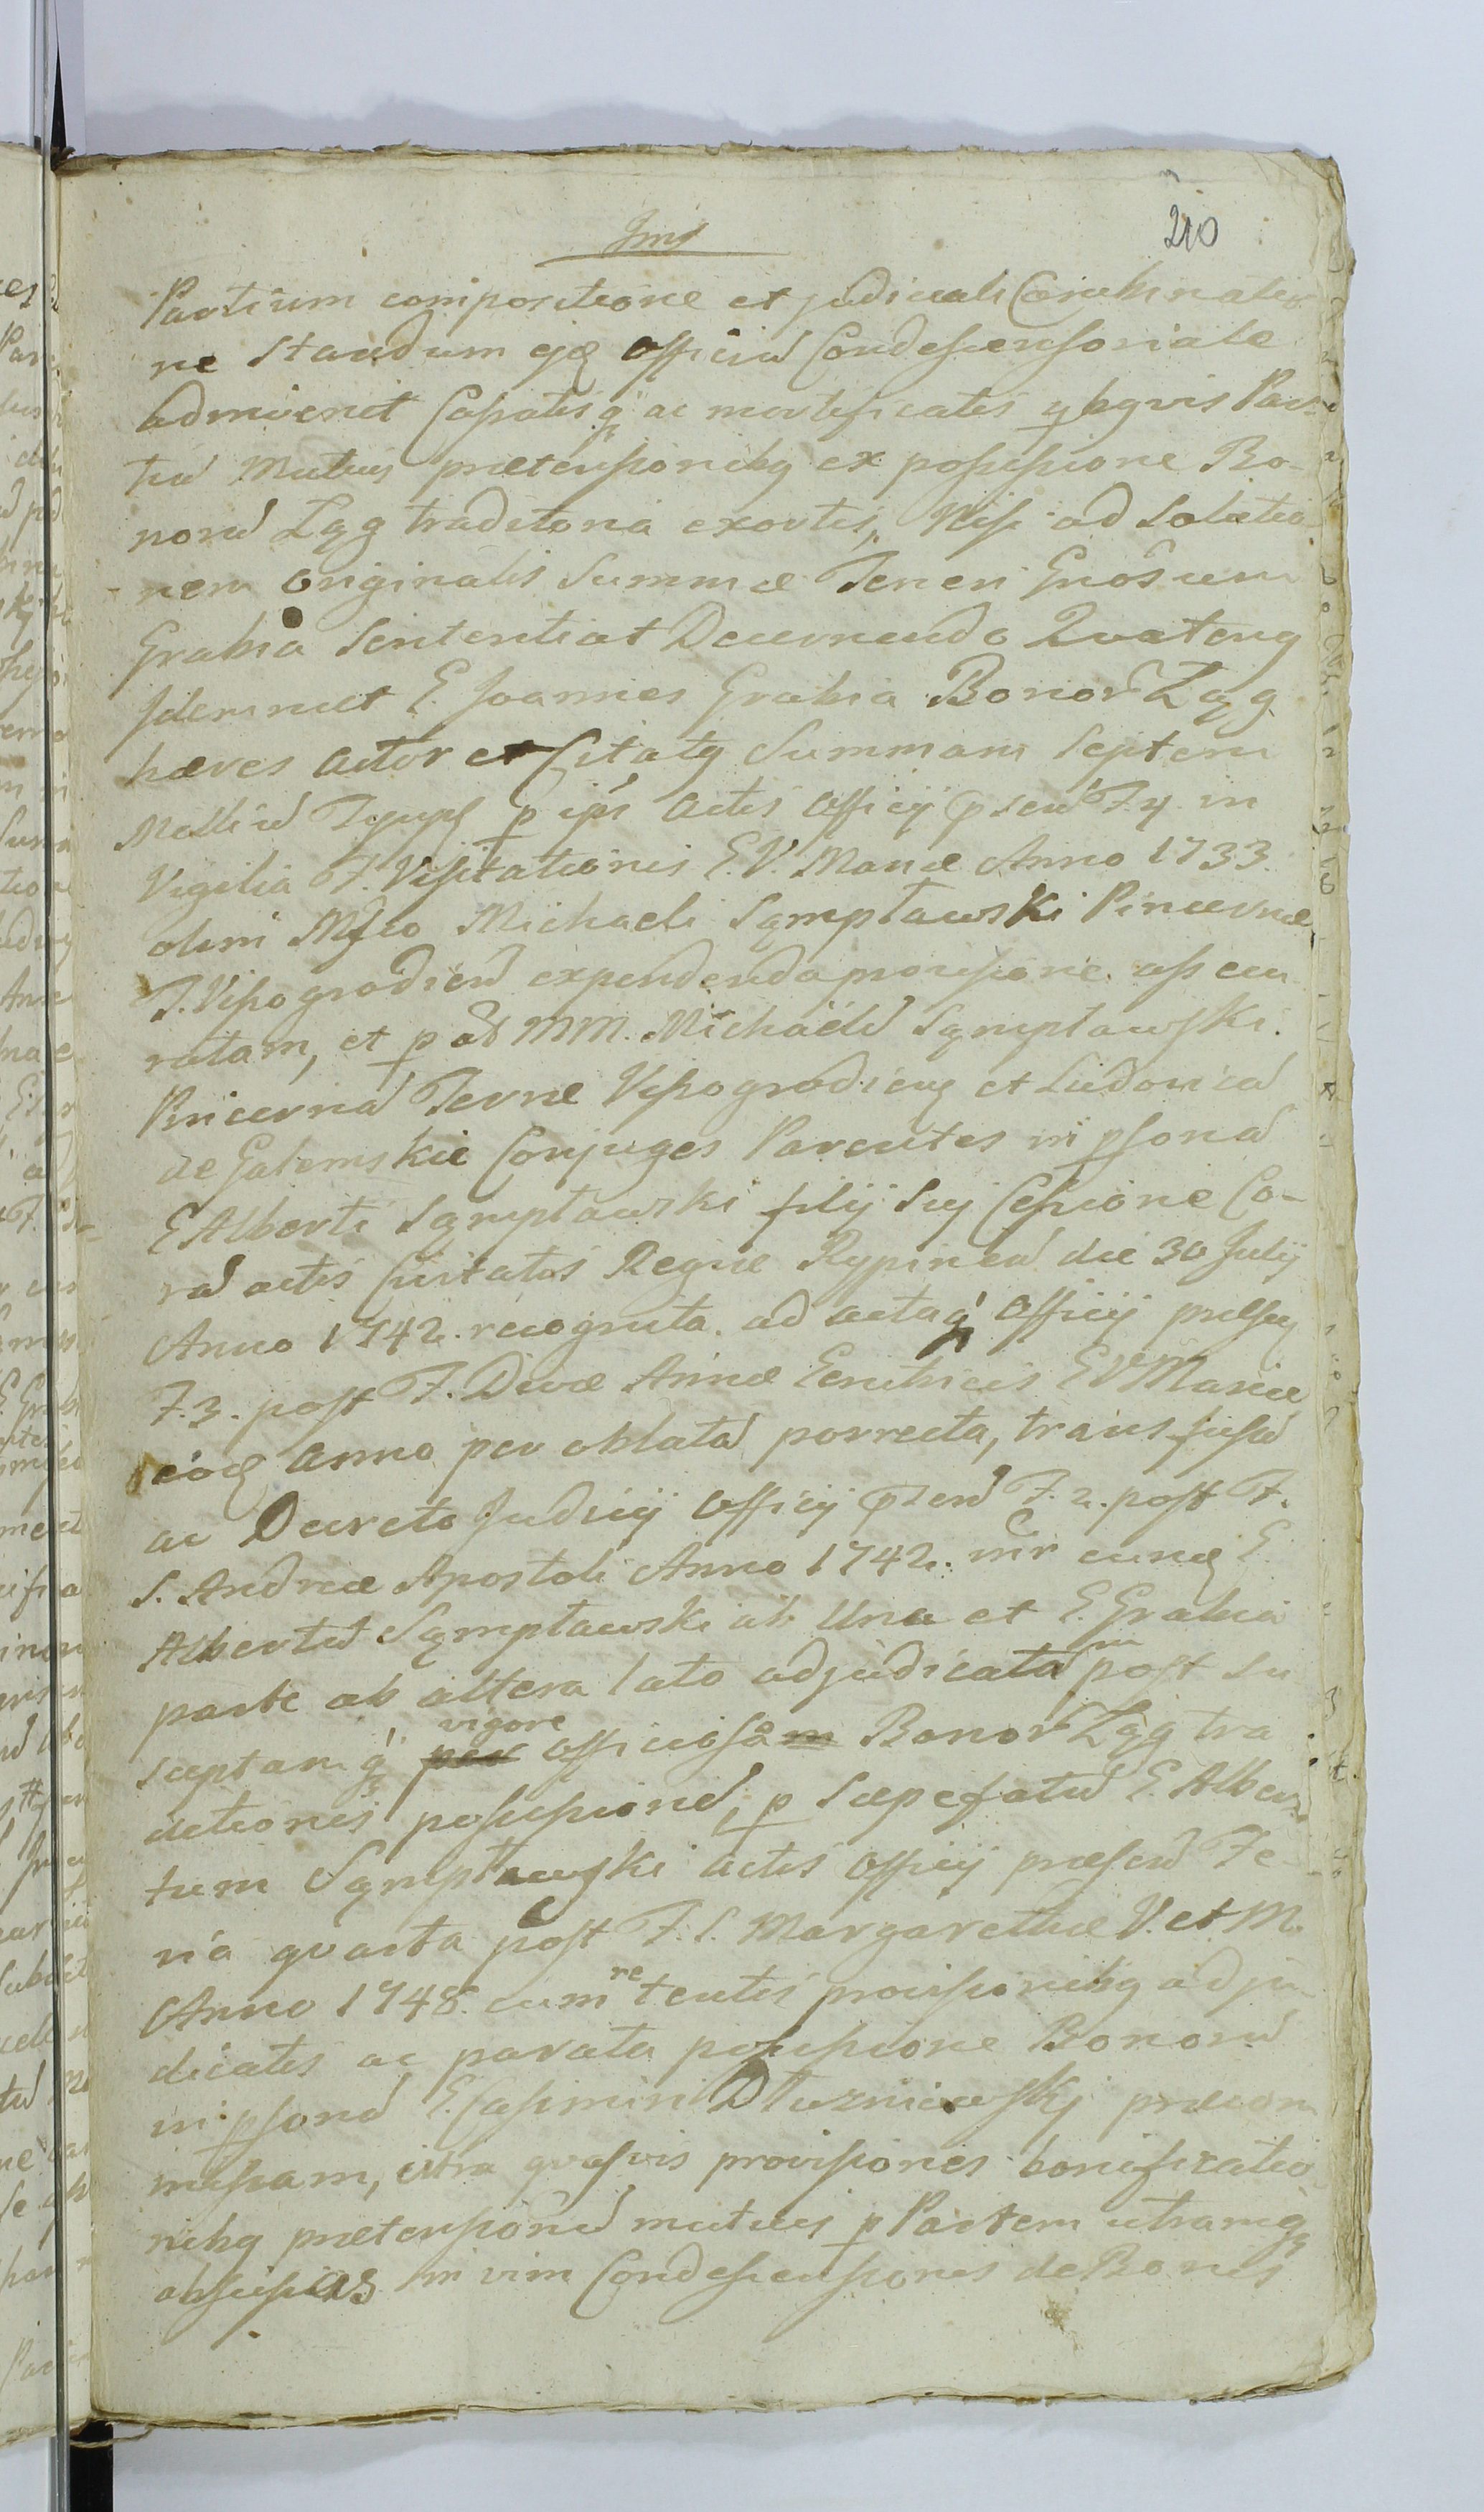 210
Partium compositione et judiciali Combinatio
ne standum ejq Officiu Condescensoriale
admiserit Cassatis q ac mortificatis qbgvis Par-
tiu Mutuis prætensionibg ex possessione Bo-
noru Zqg traditoria exortis, Nisi ad Solutio
nem originalis Summæ Teneri Gnosum
Grabia Sententiat Decernendo Quateng
Idemmet G. Joannes Grabia Bonor Zqg
hæres Actor et Citatg Summam Septem
Milliu Tympf p ipś Actis Officij pseń F. 4 in
Vigilia F. Visitationis B.V. Mariæ Anno 1733.
olim Mfco Michaeli Sąmpławski Pincernæ
T. Vissogrodień expendenda provisione assecu
ratam, et p ad MM. Michaelē Sąmpławski.
Pincernā Terræ Vissogrodieng et Ludovicā
de Galemskie Conjuges Parentes in psonā
G Alberti Sąmpławski filij Sui Cessione Co-
rā actis Civitatis Regiæ Rypineń die 30 Julij
Anno 1742. recognita. ad acta q Officij præseń
F. 3. post F. Divæ Annæ Genitricis B V Mariæ
eoq Anno per oblatā porrecta, transfusā
ac Decreto Judicij Officij pseń F. 2. post F.
S. Andreæ Apostoli Anno 1742. inr eunq G.
Albertū Sąmpławski ab Una et G. Grabia
parte ab altera lato adjudicatā post Su
sceptam q per vigore officiosam Bonor Zqg tra
ditionis possessionē, p Sæpefatū G. Alber
tum Sąmpławski Actis Officij præseń Fe-
ria quarta post F. S. Margarethæ V. et M.
Anno 1748. cum retentis provisionibg adju
dicatis ac parata possessione Bonorū
in psonā G. Casimiri Dłuzniewskj præcom
missam, citra quasvis provisiones bonificatio
nibg prætensionū mutuis p Partem utramq
abscissas in vim Condescensionis de Bonis